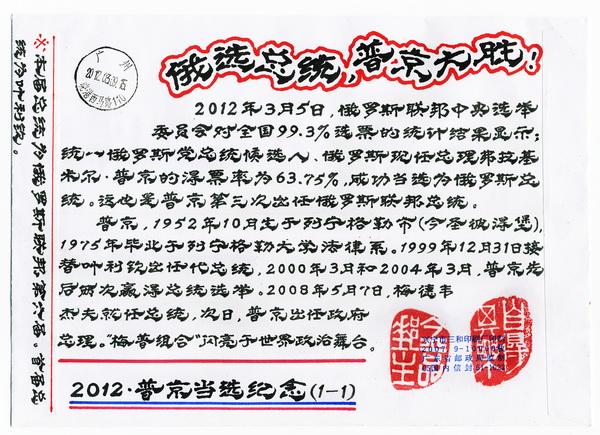 俄选总统,普京大胜!
2012年3月5日,俄罗斯联邦中央选举
委员会对全国99.3%选票的统计结果显示:
统一俄罗斯党总统候选人、俄罗斯现任总理弗拉基
米尔·普京的得票率为63.75%,成功当选为俄罗斯总
统。这也是普京第三次出任俄罗斯联邦总统。
普京,1952年10月生于列宁格勒市(今圣彼得堡),
1975年毕业于列宁格勒大学法律系。1999年12月31日接
替叶利钦出任代总统,2000年3月和2004年3月,普京先
后两次赢得总统选举。2008年5月7日,梅德韦
杰夫就任总统,次日,普京出任政府
总理。"梅普组合"闪亮于世界政治舞台。
2012·普京当选纪念(1-1)
※本届总统为俄罗斯联邦第六届。首届总
统为叶利钦。
广州
2012.03.09.16